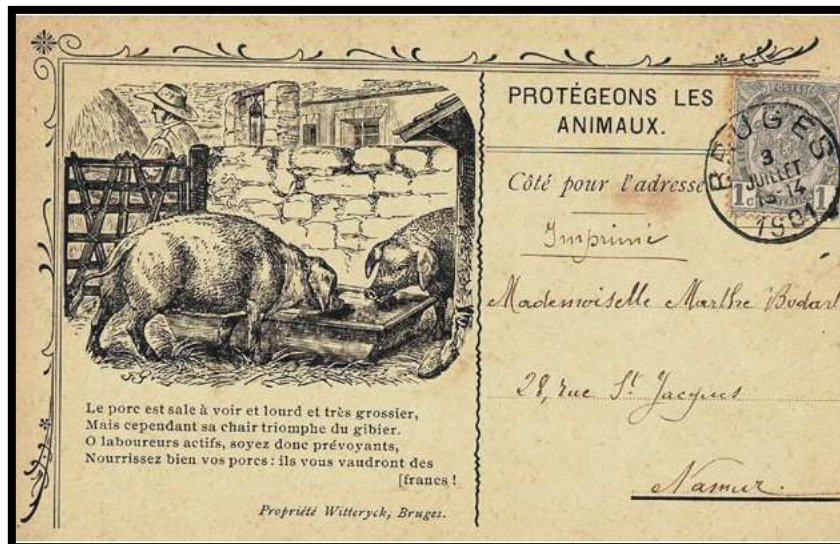 PROTÉGEONS LES
ANIMAUX.
Côté pour l'adresse
Imprimé
Mademoiselle Marthe Bodar
28, rue St Jacques
Namur.
POSTES
1c
1
BRUGES
3
JUILLET
13-14
1901
J.G.
Le porc est sale à voir et lourd et très grossier,
Mais cependant sa chair triomphe du gibier.
O laboureurs actifs, soyez donc prévoyants,
Nourrissez bien vos porcs : ils vous vaudront des
[francs !
Propriété Witteryck, Bruges.